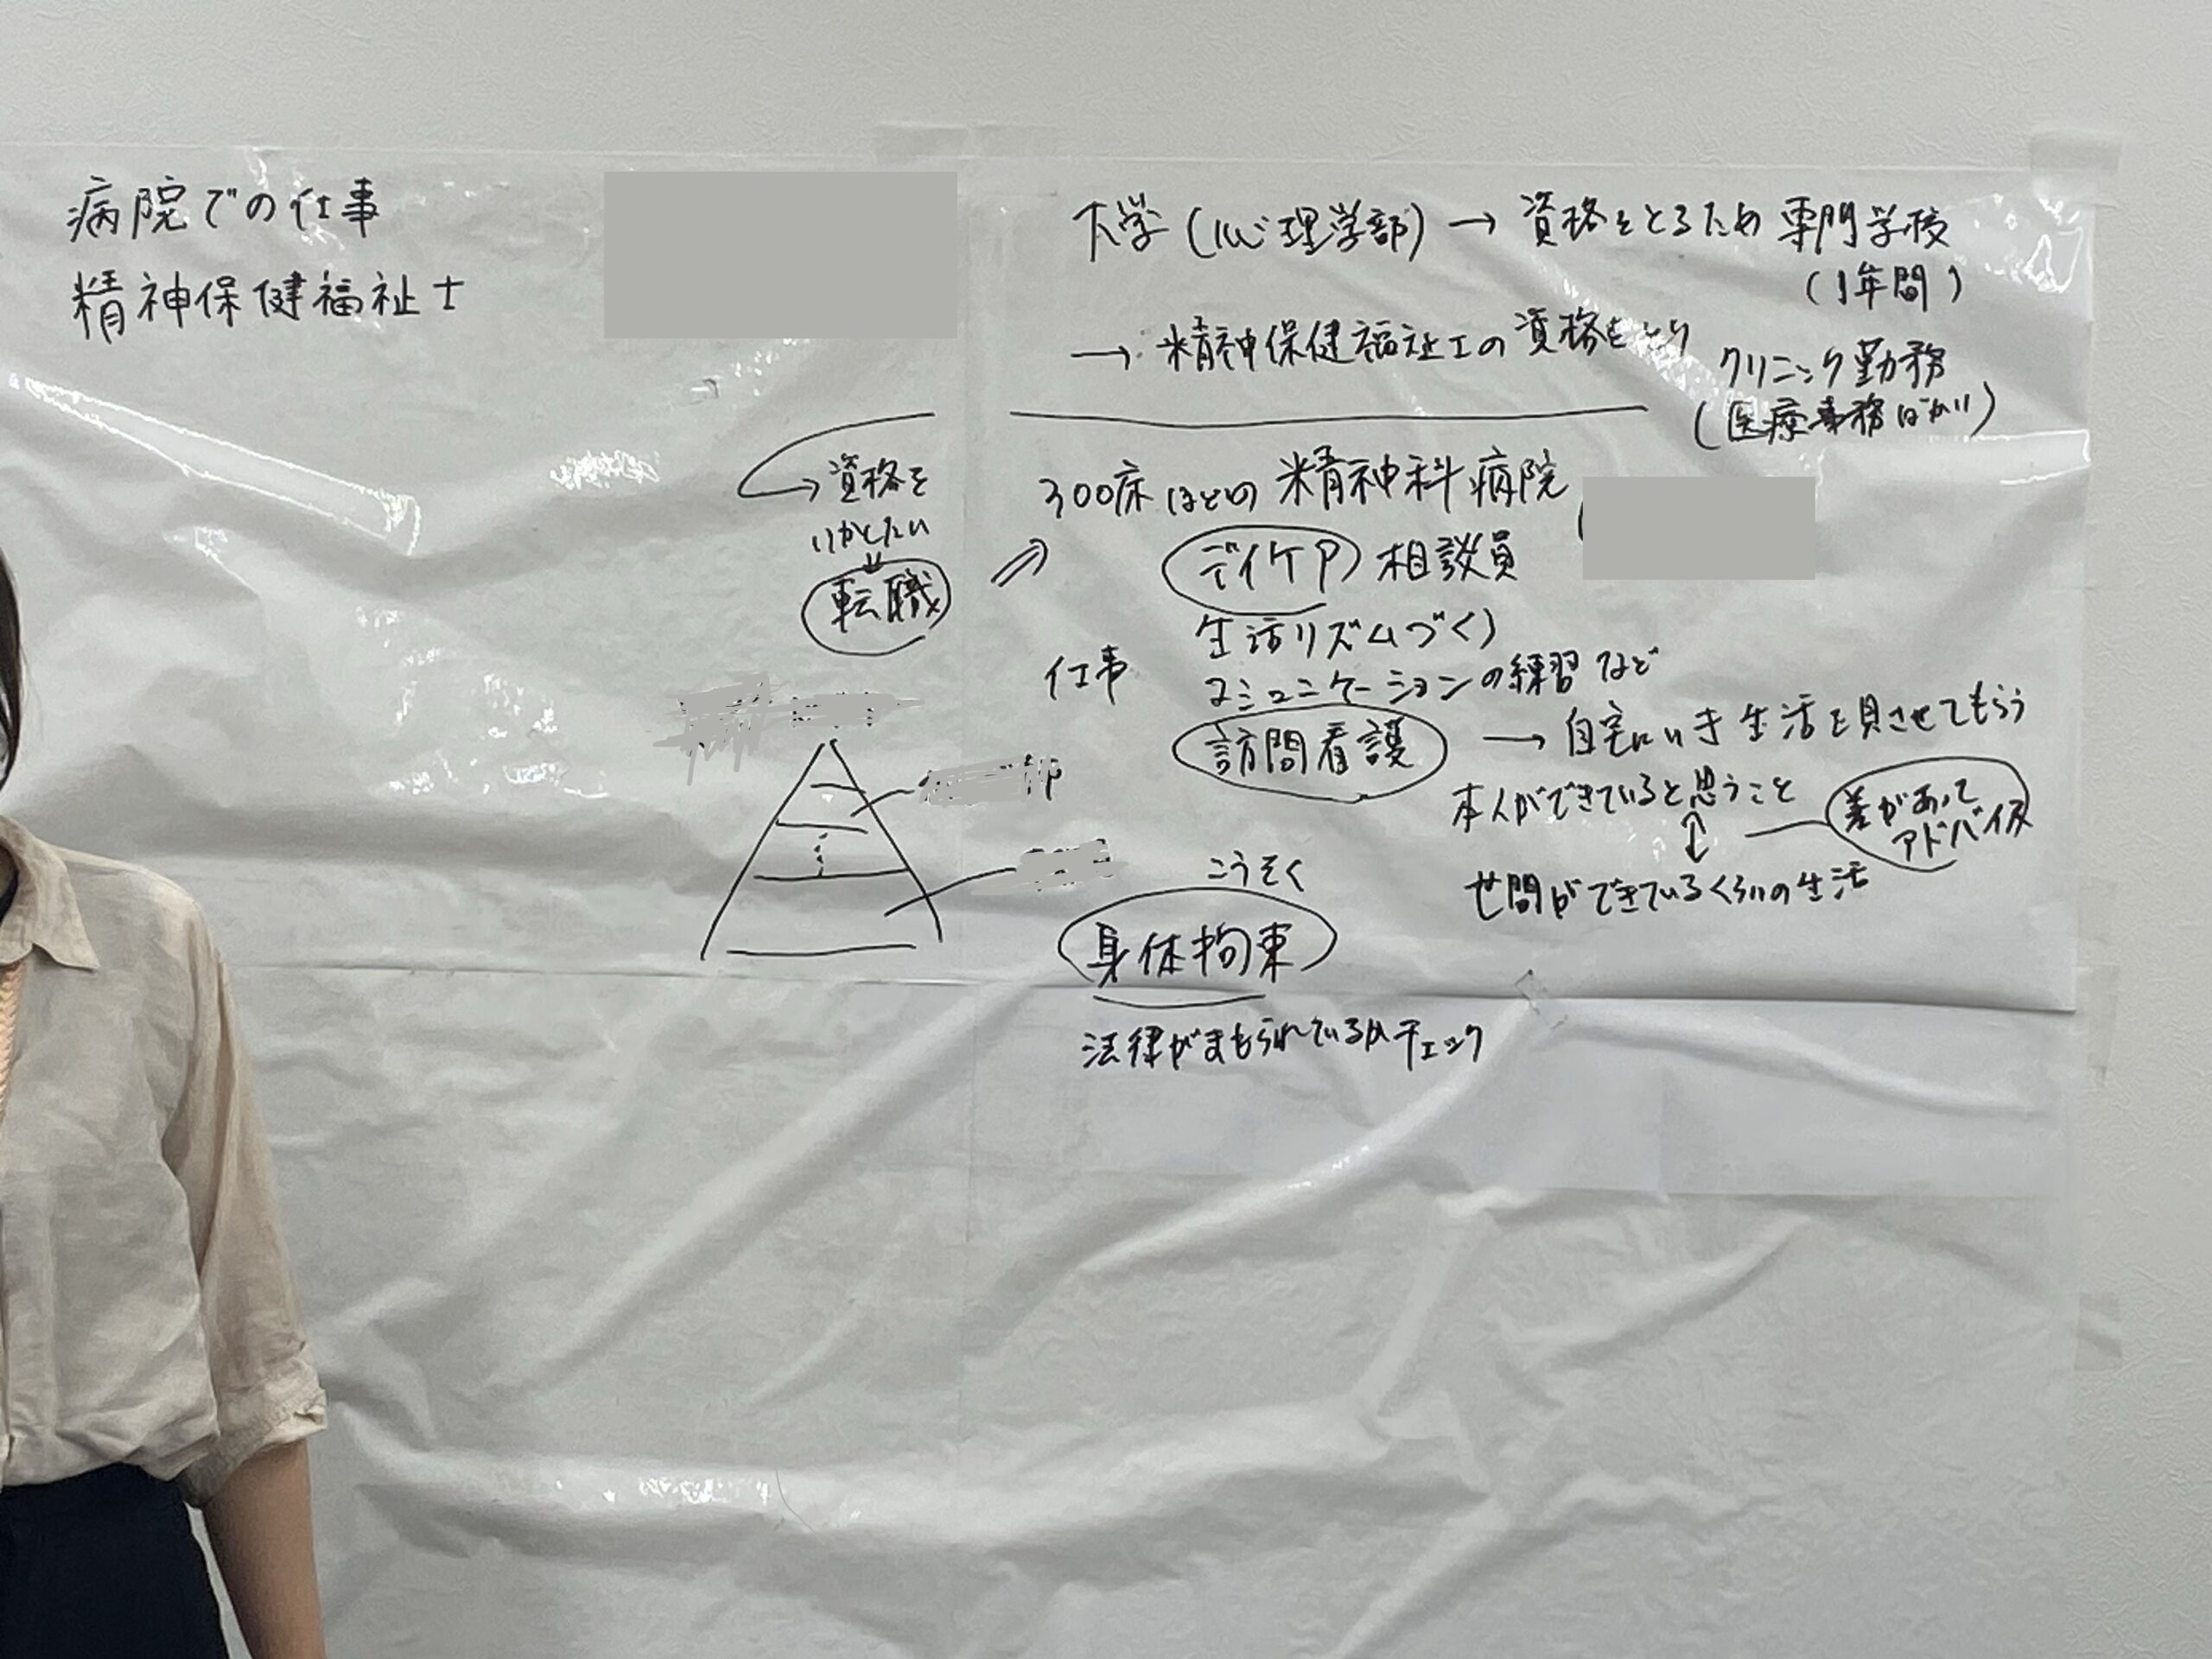 病院での仕事
精神保健福祉士
大学（心理学部）→ 資格をとるため 専門学校
（1年間）
→ 精神保健福祉士の資格をとり
クリニック勤務
（医療事務ばかり）
→ 資格を
いかしたい
転職
300床ほどの 精神科病院
デイケア 相談員
生活リズムづくり
仕事
コミュニケーションの練習など
訪問看護 → 自宅にいき 生活を見させてもらう
本人ができていると思うこと
↕
差があって
アドバイス
世間ができているくらいの生活
こうそく
身体拘束
法律がまもられているかチェック